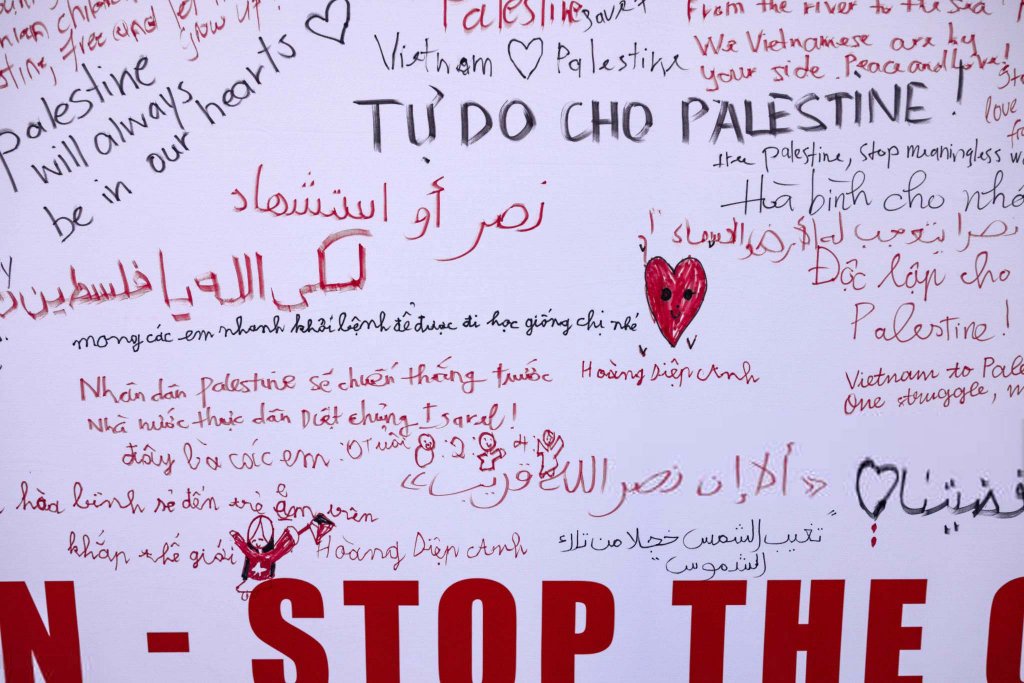 Palestine
save
From the river to the Sea
free and let it
grow up!
Vietnam ♡ Palestine
We Vietnamese are by
your side. Peace and Love!
Palestine
will always
be in our hearts
TỰ DO CHO PALESTINE!
love
free palestine, stop meaningless
Hoà bình cho
نصر أو استشهاد
لكى الله يا فلسطين
Độc lập cho
Palestine!
mong các em nhanh khỏi bệnh để được đi học giống chị nhé
Hoàng Diệp Anh
Nhân dân palestine sẽ chiến thắng trước
Nhà nước thực dân Diệt chủng Isarel!
Vietnam to
One struggle,
đây là các em : 0 tuổi : 2 : 4 :
«ألا إن نصر الله قريب»
قضيتنا
hòa bình sẽ đến trẻ em trên
khắp thế giới
Hoàng Diệp Anh
تغيب الشمس خجلا من تلك
الشموس
N - STOP THE